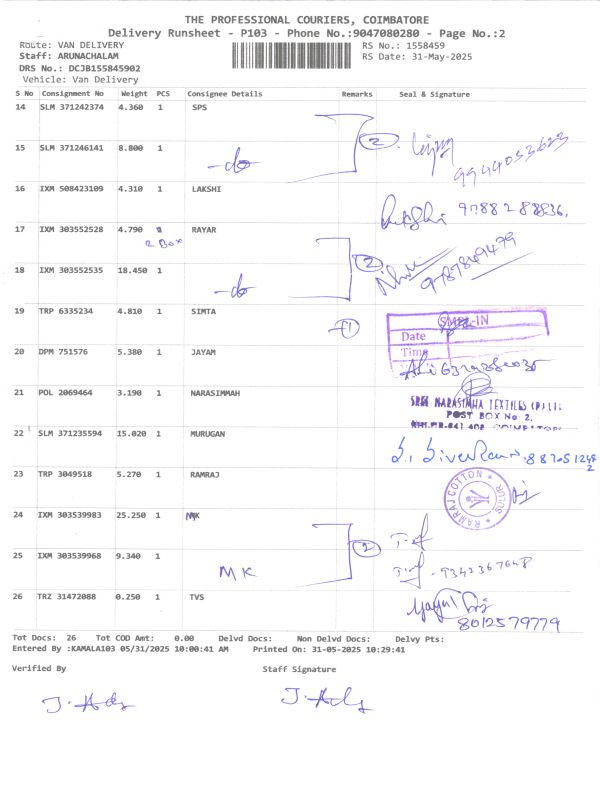 THE PROFESSIONAL COURIERS, COIMBATORE
Delivery Runsheet - P103 - Phone No.:9047080280 - Page No.:2
Route: VAN DELIVERY RS No.: 1558459
Staff: ARUNACHALAM RS Date: 31-May-2025
DRS No.: DCJB155845902
Vehicle: Van Delivery
S No Consignment No Weight PCS Consignee Details Remarks Seal & Signature
14 SLM 371242374 4.360 1 SPS
2
9944053623
15 SLM 371246141 8.800 1 -do
16 IXM 508423109 4.310 1 LAKSHI
9788288836.
17 IXM 303552528 4.790 RAYAR
2 Box
2
9787849479
18 IXM 303552535 18.450 1 -do
19 TRP 6335234 4.810 1 SIMTA
SMPL-IN
Date
Time
20 DPM 751576 5.380 1 JAYAM
21 POL 2069464 3.190 1 NARASIMMAH
SREE NARASIMHA TEXTILES (P) LTD
POST BOX No 2,
22 SLM 371235594 15.020 1 MURUGAN
23 TRP 3049518 5.270 1 RAMRAJ
RAMRAJ COTTON
SULUR
24 IXM 303539983 25.250 1 MK
2
25 IXM 303539968 9.340 1 MK
9342367648
26 TRZ 31472088 0.250 1 TVS
8012579779
Tot Docs: 26 Tot COD Amt: 0.00 Delvd Docs: Non Delvd Docs: Delvy Pts:
Entered By :KAMALA103 05/31/2025 10:00:41 AM Printed On: 31-05-2025 10:29:41
Verified By Staff Signature